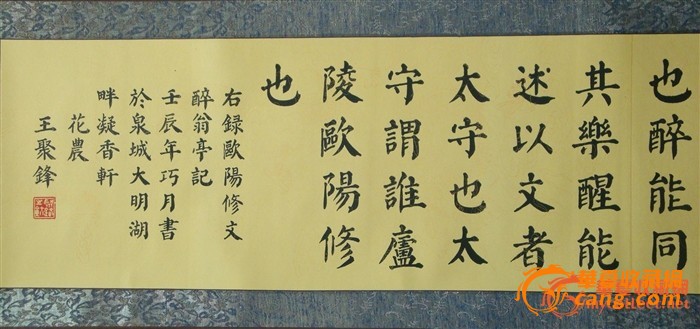 也醉能同
其樂醒能
述以文者
太守也太
守謂誰廬
陵歐陽修
也
右録歐陽修文
醉翁亭記
壬辰年巧月書
於泉城大明湖
畔凝香軒
花農
王聚鋒
cang.com